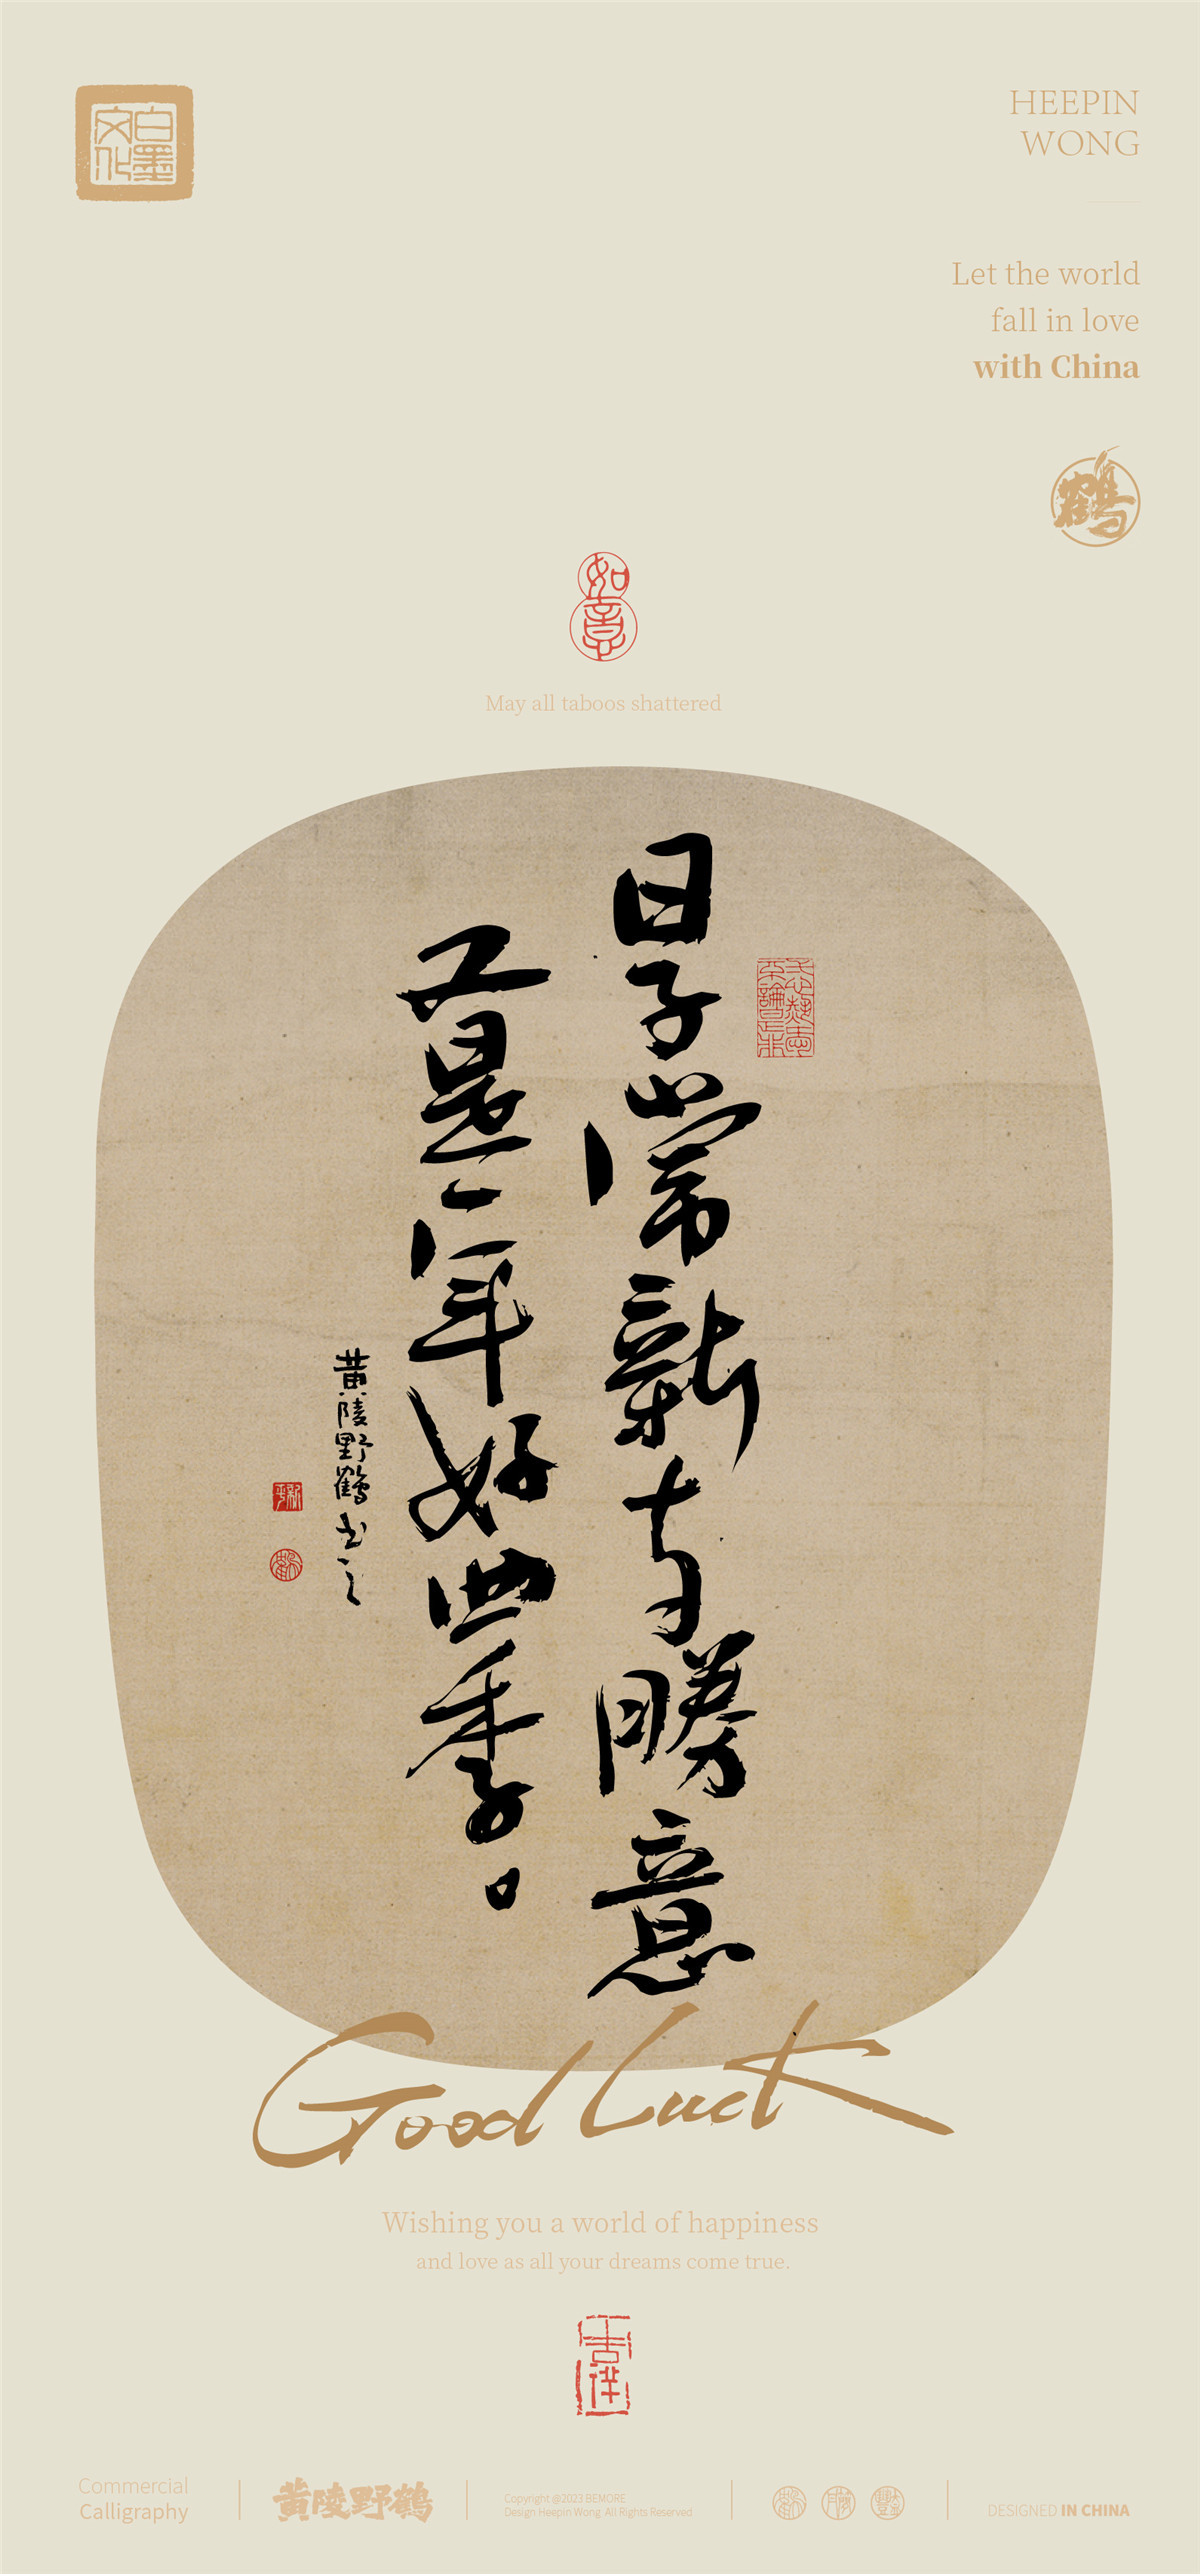 白墨文化
HEEPIN
WONG
Let the world
fall in love
with China
鹤
如意
May all taboos shattered
日子常新才有勝意
又是一年好四季。
黄陵野鶴书之
Good Luck
Wishing you a world of happiness
and love as all your dreams come true.
吉祥
Commercial
Calligraphy
黄陵野鹤
Copyright @2023 BEMORE
Design Heepin Wong All Rights Reserved
DESIGNED IN CHINA